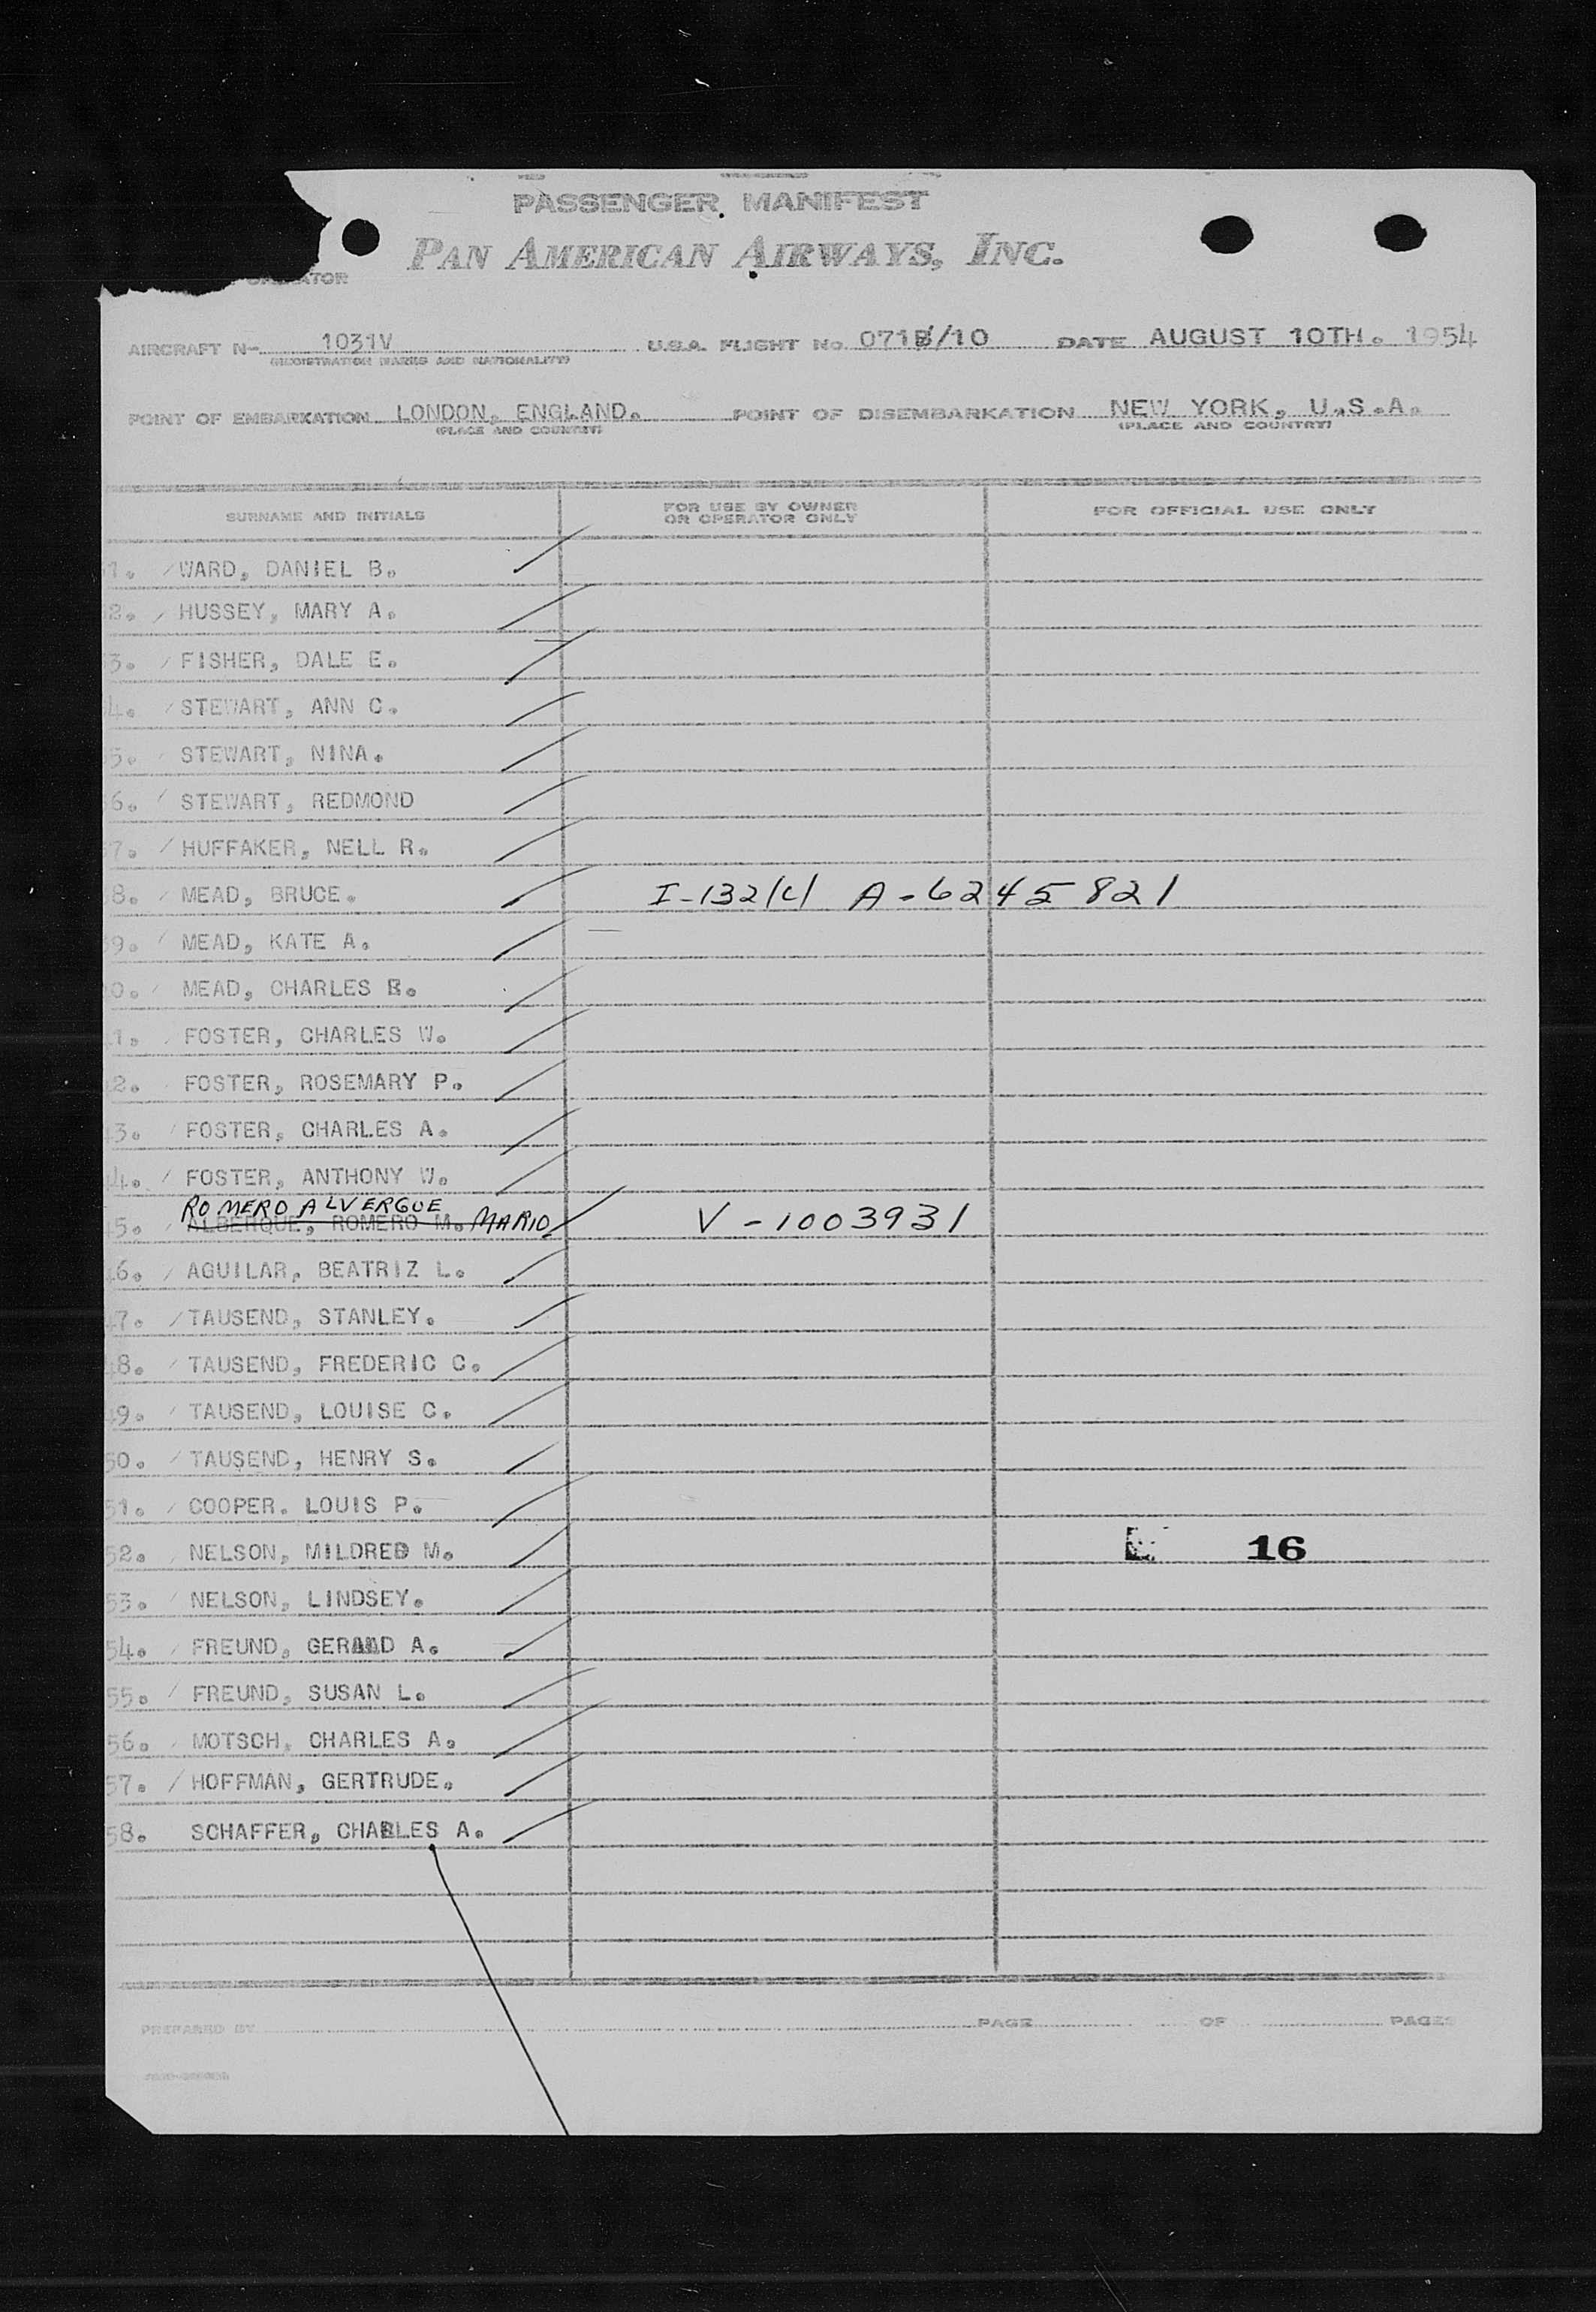 PASSENGER MANIFEST
PAN AMERICAN AIRWAYS, INC.
AIRCRAFT N- 1031V U.S.A. FLIGHT No. 071 /10 DATE AUGUST 10TH. 1954
(REGISTRATION MARKS AND NATIONALITY)
POINT OF EMBARKATION LONDON, ENGLAND. POINT OF DISEMBARKATION NEW YORK, U.S.A.
(PLACE AND COUNTRY) (PLACE AND COUNTRY)
SURNAME AND INITIALS FOR USE BY OWNER OR OPERATOR ONLY FOR OFFICIAL USE ONLY
1. / WARD, DANIEL B.
2. / HUSSEY, MARY A.
3. / FISHER, DALE E.
4. / STEWART, ANN C.
5. / STEWART, NINA.
6. / STEWART, REDMOND
7. / HUFFAKER, NELL R.
8. / MEAD, BRUCE. I-132/c/ A-6245821
9. / MEAD, KATE A.
0. / MEAD, CHARLES E.
1. / FOSTER, CHARLES W.
2. / FOSTER, ROSEMARY P.
3. / FOSTER, CHARLES A.
4. / FOSTER, ANTHONY W.
ROMERO ALVERGUE
5. / ALBERQUE, ROMERO M. MARIO V-1003931
6. / AGUILAR, BEATRIZ L.
47. / TAUSEND, STANLEY.
48. / TAUSEND, FREDERIC C.
49. / TAUSEND, LOUISE C.
50. / TAUSEND, HENRY S.
51. / COOPER. LOUIS P.
52. / NELSON, MILDRED M. 16
53. / NELSON, LINDSEY.
54. / FREUND, GERALD A.
55. / FREUND, SUSAN L.
56. / MOTSCH, CHARLES A.
57. / HOFFMAN, GERTRUDE.
58. SCHAFFER, CHARLES A.
PREPARED BY PAGE OF PAGES